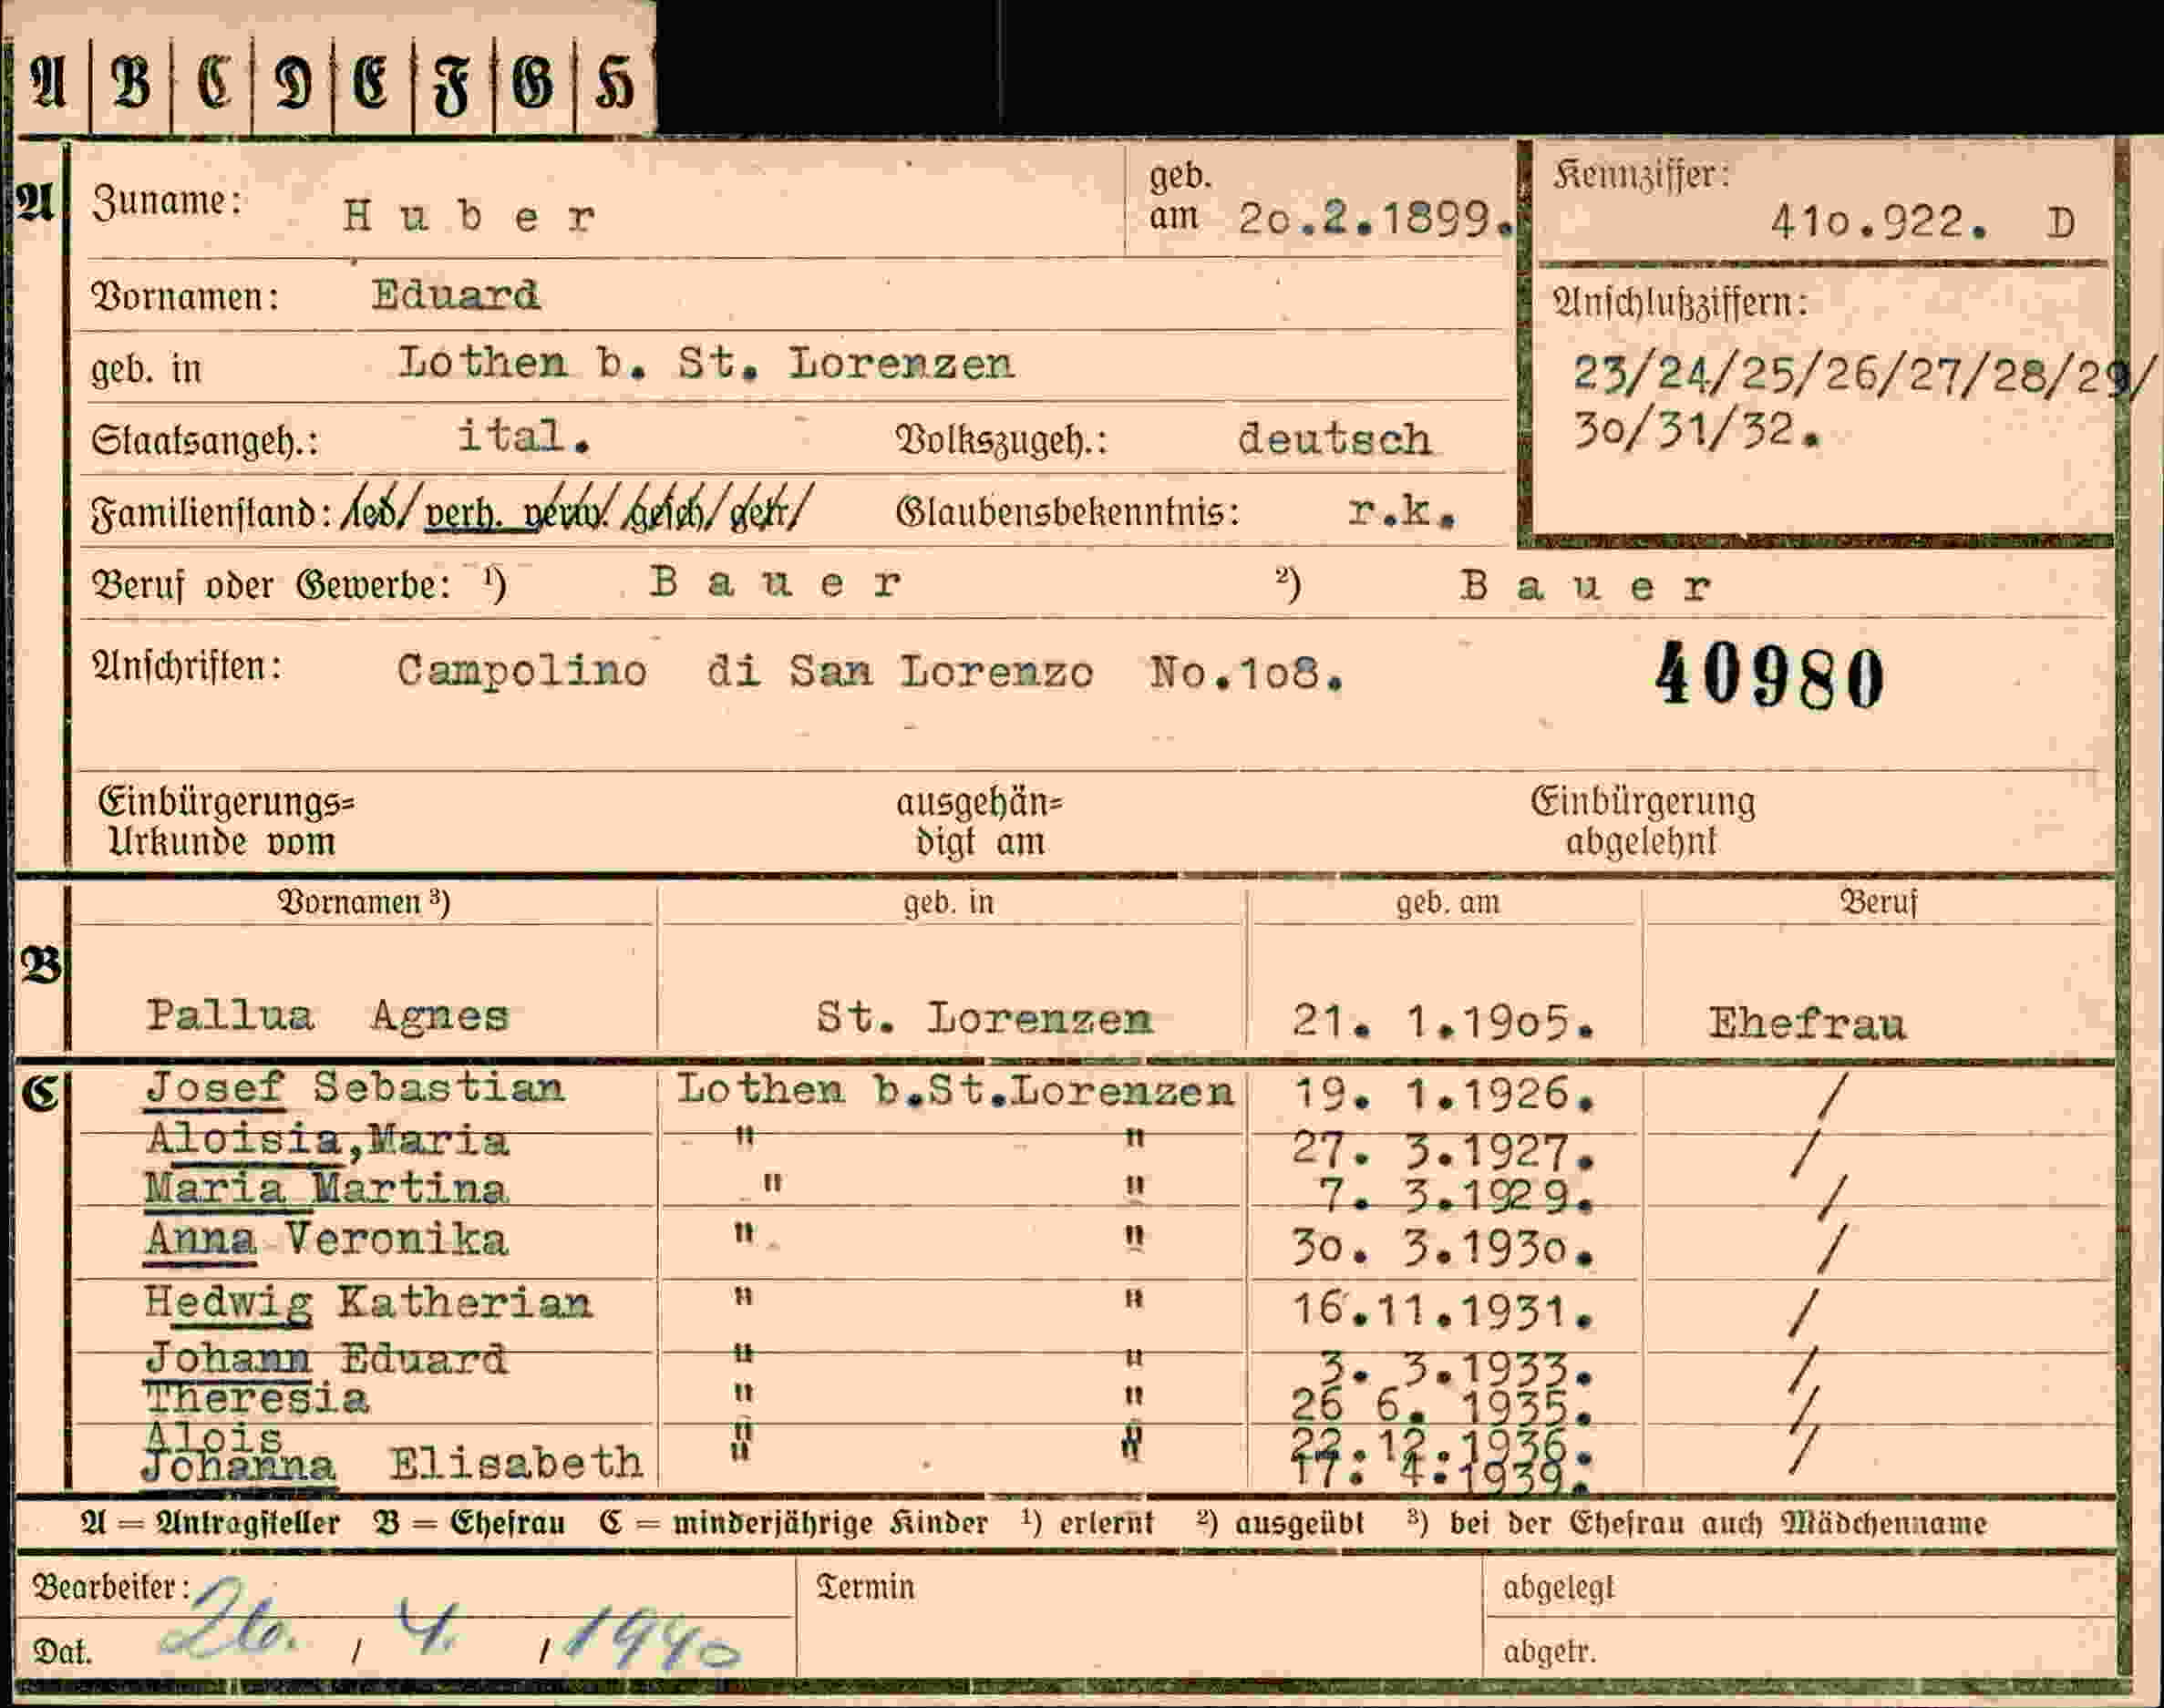 A B C D E F G H
A Zuname: Huber geb. am 20.2.1899. Kennziffer: 410.922. D
Vornamen: Eduard Anschlußziffern:
geb. in Lothen b. St. Lorenzen 23/24/25/26/27/28/29/
Staatsangeh.: ital. Volkszugeh.: deutsch 30/31/32.
Familienstand: led. verh. verw. gesch. getr. Glaubensbekenntnis: r.k.
Beruf oder Gewerbe: ¹) Bauer ²) Bauer
Anschriften: Campolino di San Lorenzo No.108. 40980
Einbürgerungs= ausgehän= Einbürgerung
Urkunde vom digt am abgelehnt
Vornamen ³) geb. in geb. am Beruf
B Pallua Agnes St. Lorenzen 21. 1.1905. Ehefrau
C Josef Sebastian Lothen b.St.Lorenzen 19. 1.1926. /
Aloisia,Maria " " 27. 3.1927. /
Maria Martina " " 7. 3.1929. /
Anna Veronika " " 30. 3.1930. /
Hedwig Katherian " " 16.11.1931. /
Johann Eduard " " 3. 3.1933. /
Theresia " " 26 6. 1935. /
Alois " " 22.12.1936. /
Johanna Elisabeth " " 17. 4.1939.
A = Antragsteller B = Ehefrau C = minderjährige Kinder ¹) erlernt ²) ausgeübt ³) bei der Ehefrau auch Mädchenname
Bearbeiter: Termin abgelegt
Dat. 26. / 4. / 1940 abgetr.